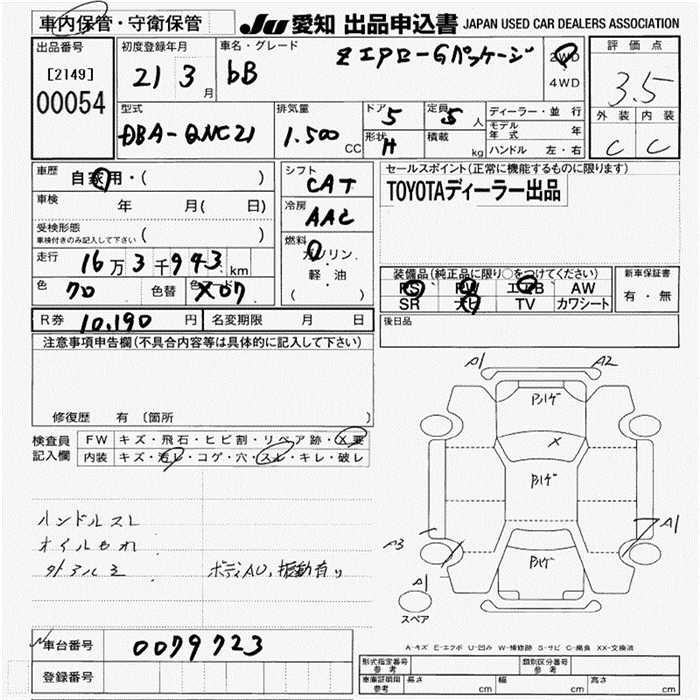 車内保管・守衛保管 JU 愛知 出品申込書 JAPAN USED CAR DEALERS ASSOCIATION
出品番号 初度登録年月 車名・グレード 評価点
[2149] 21 3 月 bB Z エアロ-Gパッケージ 2WD 3.5
00054 4WD
型式 排気量 ドア 5 定員 5 人 ディーラー・並行 外装 内装
DBA-QNC21 1.500 CC 形状 H 積載 kg モデル年式 年 C C
ハンドル 左・右
車歴 自家用・( ) シフト CAT セールスポイント(正常に機能するものに限ります)
車検 年 月( 日) 冷房 AAC TOYOTAディーラー出品
受検形態 ( )
車検付きのみ記入して下さい
走行 16万3千943km 燃料 ガソリン
軽・油
( )
装備品(純正品に限り○をつけてください) 新車保証書
色 黒 色替 カラーコード X07 PS PW エアB AW 有・無
SR ナビ TV カワシート
R券 10,190 円 名変期限 月 日 後日品
注意事項申告欄(不具合内容等は具体的に記入して下さい)
修復歴 有 〔箇所 〕
検査員 FW キズ・飛石・ヒビ割・リペア跡・X要
記入欄 内装 キズ・汚レ・コゲ・穴・スレ・キレ・破レ
ハンドルスレ
オイルもれ
ボディAU、振動有り
A1 A2
Bハゲ
X
Bハゲ
A1
A3 Bハゲ
A1
スペア
A-キズ E-エクボ U-凹み W-補修跡 S-サビ C-腐食 XX-交換済
車台番号 0079723
登録番号
形式指定番号 参考 類別区分番号 参考
車庫証明用 参考 長さ cm 幅 cm 高さ cm